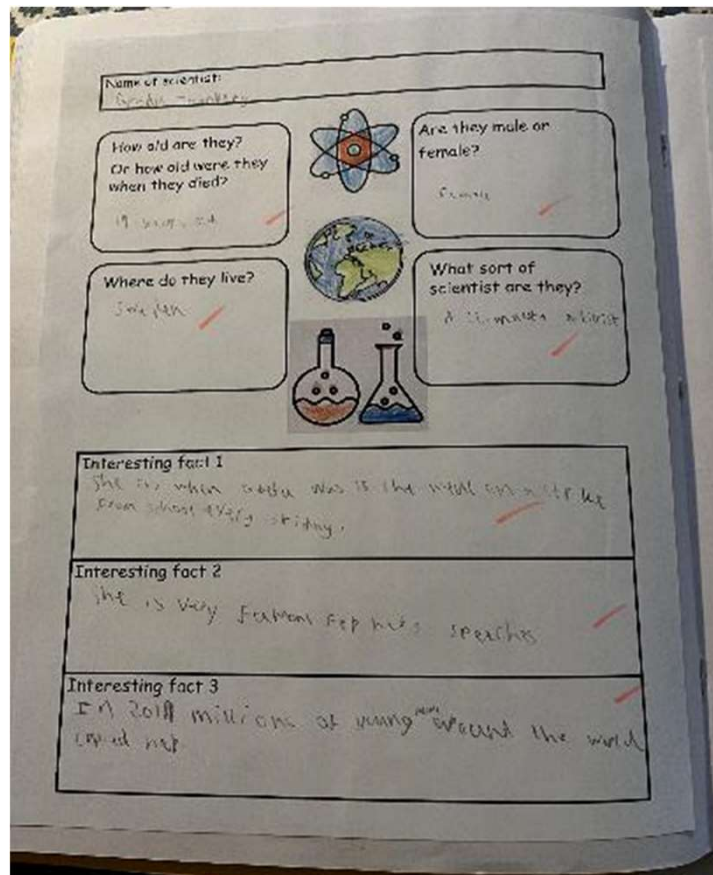 Name of scientist:
Greta Thunberg
How old are they?
Or how old were they
when they died?
19 years old
Are they male or
female?
female
Where do they live?
Sweden
What sort of
scientist are they?
A climate activist
Interesting fact 1
She is when Greta was 15 she went on a strike
from school every friday.
Interesting fact 2
She is very famous for her speaches
Interesting fact 3
In 2019 millions of young around the world
copied her